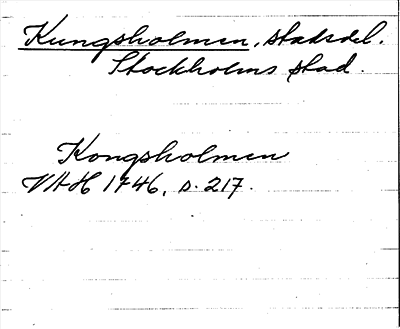 Kungsholmen, stadsdel.
Stockholms stad.
Kongsholmen
VAH 1746, s. 217.